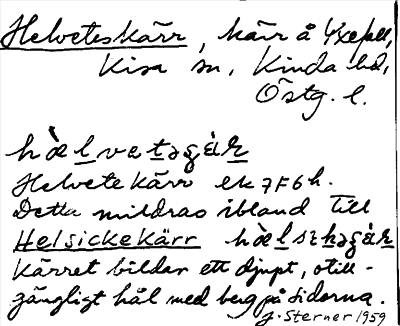 Helveteskärr, kärr å Yxefall,
Kisa sn, Kinda hd,
Östg. l.
hæ̀lvetəsçà̈r
Helvetekärr ek 7F6h.
Detta mildras ibland till
Helsickekärr
Kärret bildar ett djupt, otill-
gängligt hål med berg på sidorna.
J. Sterner 1959